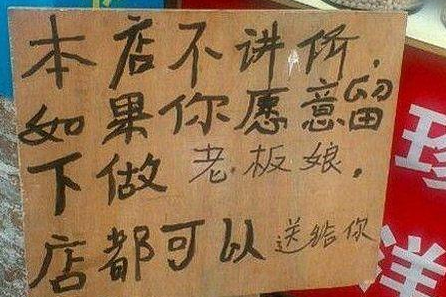 本店不讲价.
如果你愿意留
下做老板娘.
店都可以送给你
珍
洋